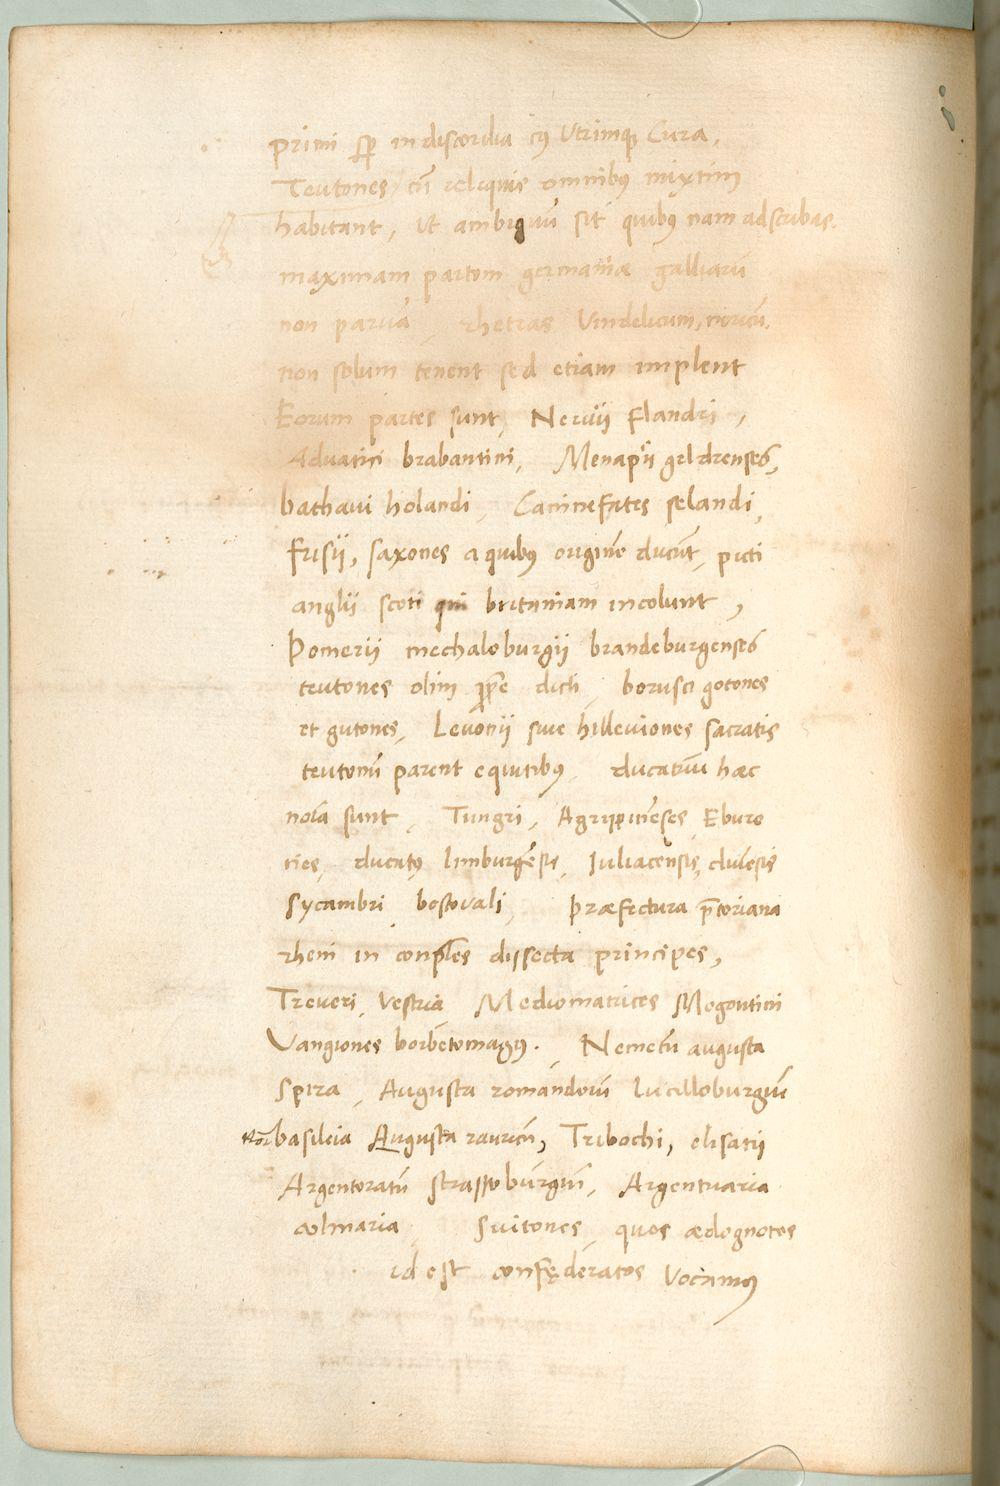 primi sꝑ in discordia cꝰ Utrimqꝫ Cura,
Teutones cū reliquis omnibꝰ mixtim
habitant, ut ambiguū sit quibꝰ nam adscribas.
maximam partem germaniæ galliarū
non parvā, rhetias Vindelicum, noricū,
non solum tenent sed etiam implent
Eorum partes sunt, Nervii flandri,
Aduatici brabantini, Menapii geldrenses,
bathavi holandi, Caninefates selandi,
frisii, saxones a quibꝰ originē ducūt, picti
anglii scoti qui britaniam incolunt,
Pomerii mechaloburgii brandeburgenses
teutones olim ꝓpͥe dicti, borusci gotones
et gutones, Levonii sive hilleviones sacratis
teutonū parent equitibꝰ, ducatuū hæc
noīa sunt, Tungri, Agrippinēses, Eburo
nes, ducatꝰ limburgēsis, Iuliacensis, clivēsis
Sycambri bestovali, præfectura p̄toriana
rheni in conples dissecta principes,
Treveri, Vestria Mediomatrices Mogontini
Vangiones borbetomagꝰ. Nemetū augusta
spira, Augusta romandorū lucilloburgiū
basileia Augusta rauricū, Tribochi, elisatii
Argentoratū strassoburgiū, Argentuaria
colmaria, Suitones, quos ædognotos
id est confęderatos vocamꝰ